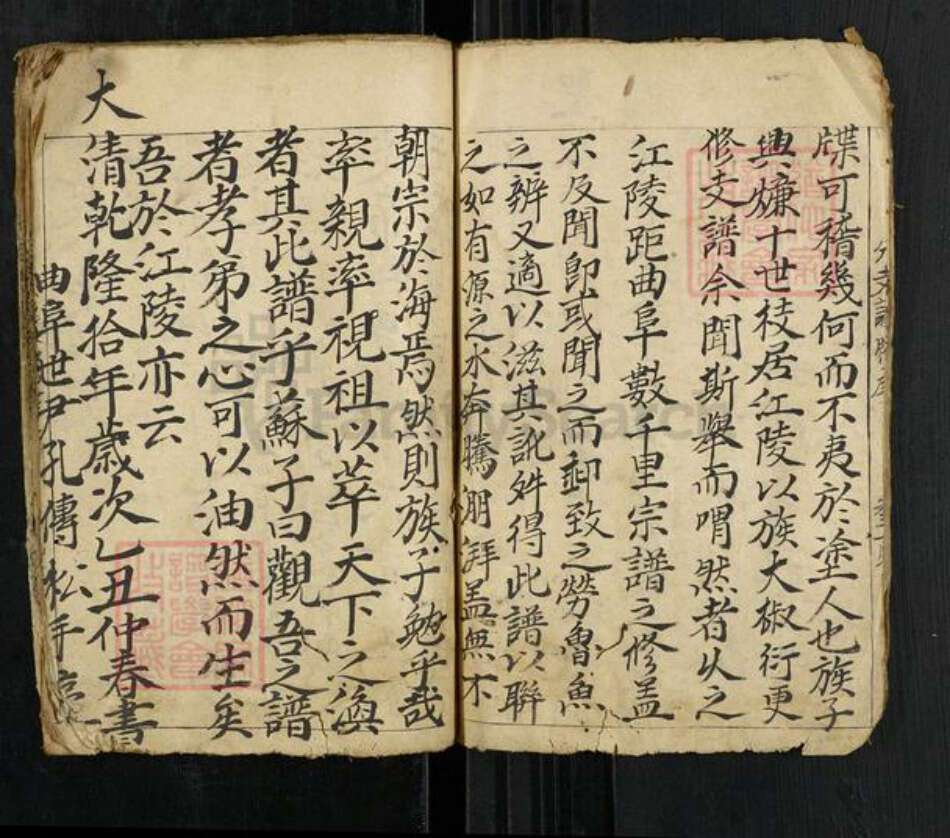 牒可稽幾何而不夷於塗人也族子
興㷍十世枝居江陵以族大椒衍更
修支譜余聞斯舉而喟然者久之
江陵距曲阜數千里宗譜之修盖
不及聞卽或聞之而卸致之勞魯魚
之辨又適以滋其訛舛得此譜以聯
之如有源之水奔騰朋湃盖無不
朝宗於海焉然則族子勉乎哉
率親率視祖以萃天下之渙
者其此譜乎蘇子曰觀吾之譜
者孝弟之心可以油然而生矣
吾於江陵亦云
大清乾隆拾年歲次乙丑仲春書
曲阜世尹孔傳松手